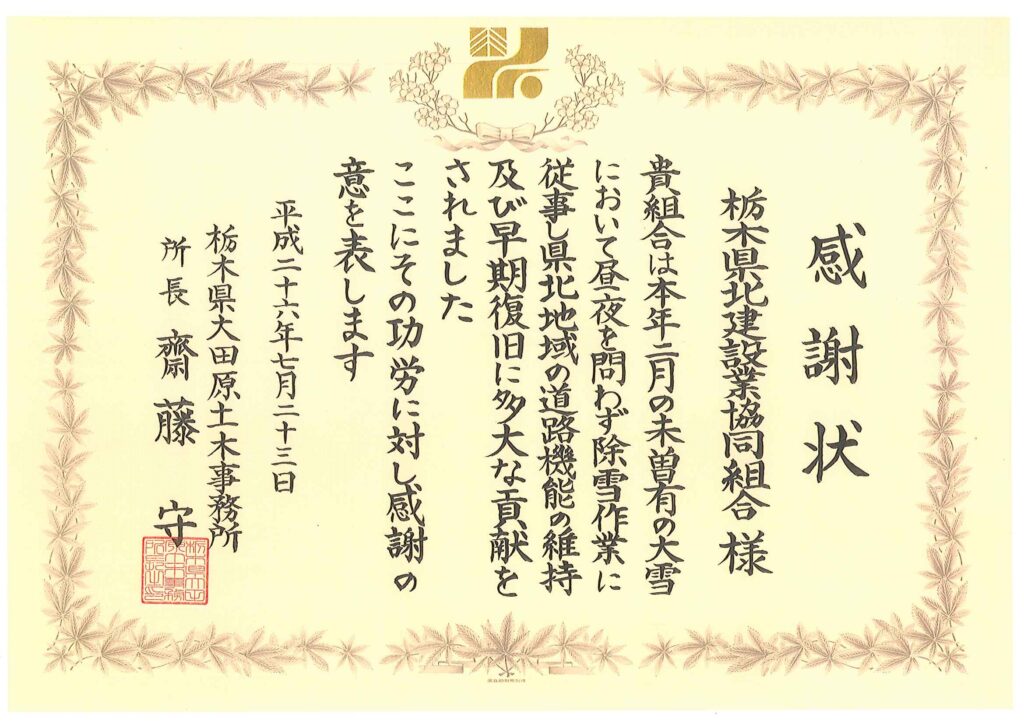 感謝状
栃木県北建設業協同組合様
貴組合は本年二月の未曽有の大雪
において昼夜を問わず除雪作業に
従事し県北地域の道路機能の維持
及び早期復旧に多大な貢献を
されました
ここにその功労に対し感謝の
意を表します
平成二十六年七月二十三日
栃木県大田原土木事務所
所長 齋藤 守